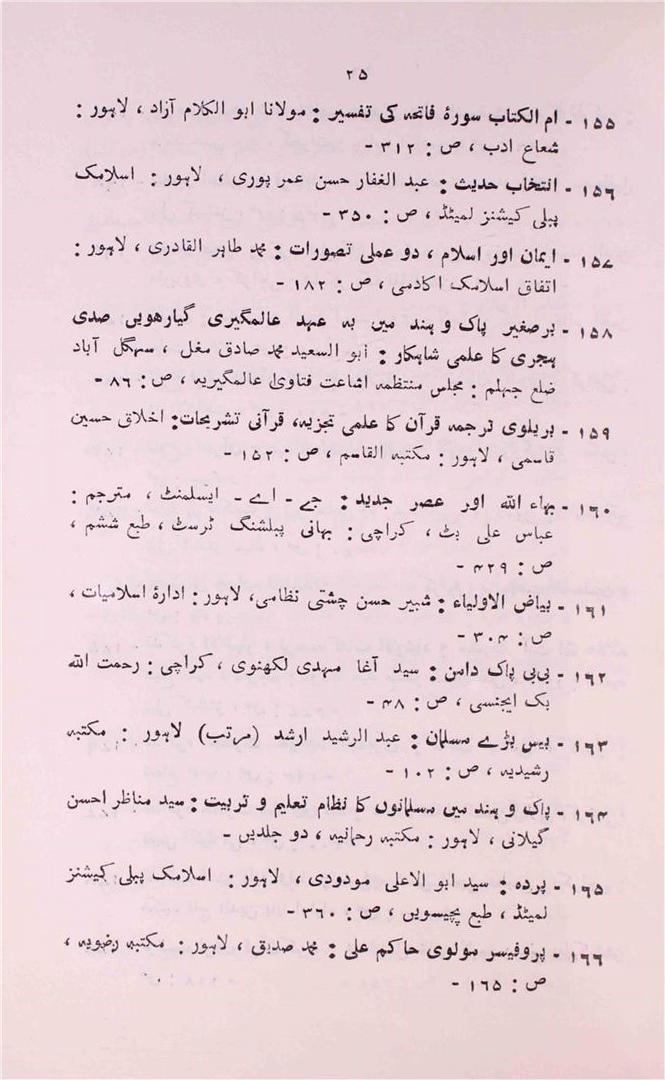 ۲۵
۱۵۵ - ام الکتاب سورۂ فاتحہ کی تفسیر : مولانا ابو الکلام آزاد ، لاہور :
شعاع ادب ، ص : ۳۱۲ -
۱۵۶ - انتخاب حدیث : عبد الغفار حسن عمر پوری ، لاہور : اسلامک
پبلی کیشنز لمیٹڈ ، ص : ۳۵۰ -
۱۵۷ - ایمان اور اسلام ، دو عملی تصورات : محمد طاہر القادری ، لاہور :
اتفاق اسلامک اکادمی ، ص : ۱۸۲ -
۱۵۸ - برصغیر پاک و ہند میں بہ عہد عالمگیری گیارھویں صدی
ہجری کا علمی شاہکار : ابو السعید محمد صادق مغل ، سہگل آباد
ضلع جہلم : مجلس منتظمہ اشاعت فتاویٰ عالمگیریہ ، ص : ۸۶ -
۱۵۹ - بریلوی ترجمہ قرآن کا علمی تجزیہ، قرآنی تشریحات: اخلاق حسین
قاسمی ، لاہور : مکتبہ القاسم ، ص : ۱۵۲ -
۱۶۰ - بہاء اللہ اور عصر جدید : جے - اے - ایسلمنٹ ، مترجم :
عباس علی بٹ ، کراچی : بہائی پبلشنگ ٹرسٹ ، طبع ششم ،
ص : ۴۲۹ -
۱۶۱ - بیاض الاولیاء : شبیر حسن چشتی نظامی، لاہور : ادارۂ اسلامیات ،
ص : ۳۰۴ -
۱۶۲ - بی بی پاک دامن : سید آغا مہدی لکھنوی ، کراچی : رحمت اللہ
بک ایجنسی ، ص : ۴۸ -
۱۶۳ - بیس بڑے مسلمان : عبد الرشید ارشد (مرتب) لاہور : مکتبہ
رشیدیہ ، ص : ۱۰۲ -
۱۶۴ - پاک و ہند میں مسلمانوں کا نظام تعلیم و تربیت : سید مناظر احسن
گیلانی ، لاہور : مکتبہ رحمانیہ ، دو جلدیں -
۱۶۵ - پردہ : سید ابو الاعلی مودودی ، لاہور : اسلامک پبلی کیشنز
لمیٹڈ ، طبع پچیسویں ، ص : ۳۶۰ -
۱۶۶ - پروفیسر مولوی حاکم علی : محمد صدیق ، لاہور : مکتبہ رضویہ ،
ص : ۱۶۵ -